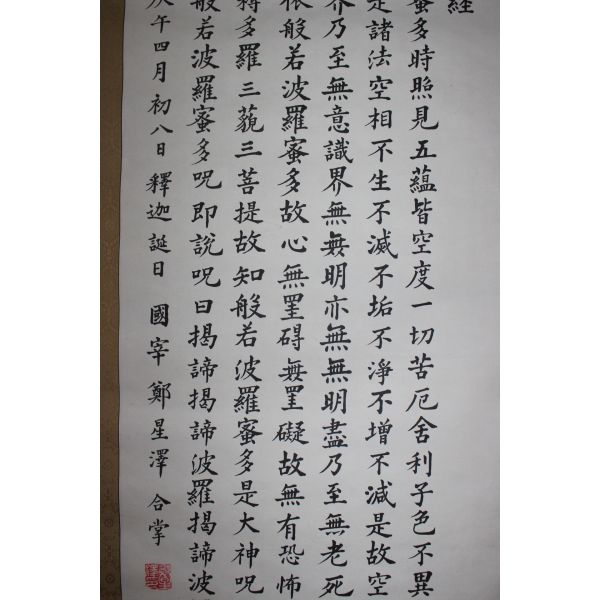 經
蜜多時照見五蘊皆空度一切苦厄舍利子色不異
是諸法空相不生不滅不垢不淨不增不減是故空
界乃至無意識界無無明亦無無明盡乃至無老死
依般若波羅蜜多故心無罣碍無罣礙故無有恐怖
耨多羅三藐三菩提故知般若波羅蜜多是大神呪
般若波羅蜜多呪即說呪曰揭諦揭諦波羅揭諦波
庚午四月初八日釋迦誕日 國宰鄭星澤 合掌